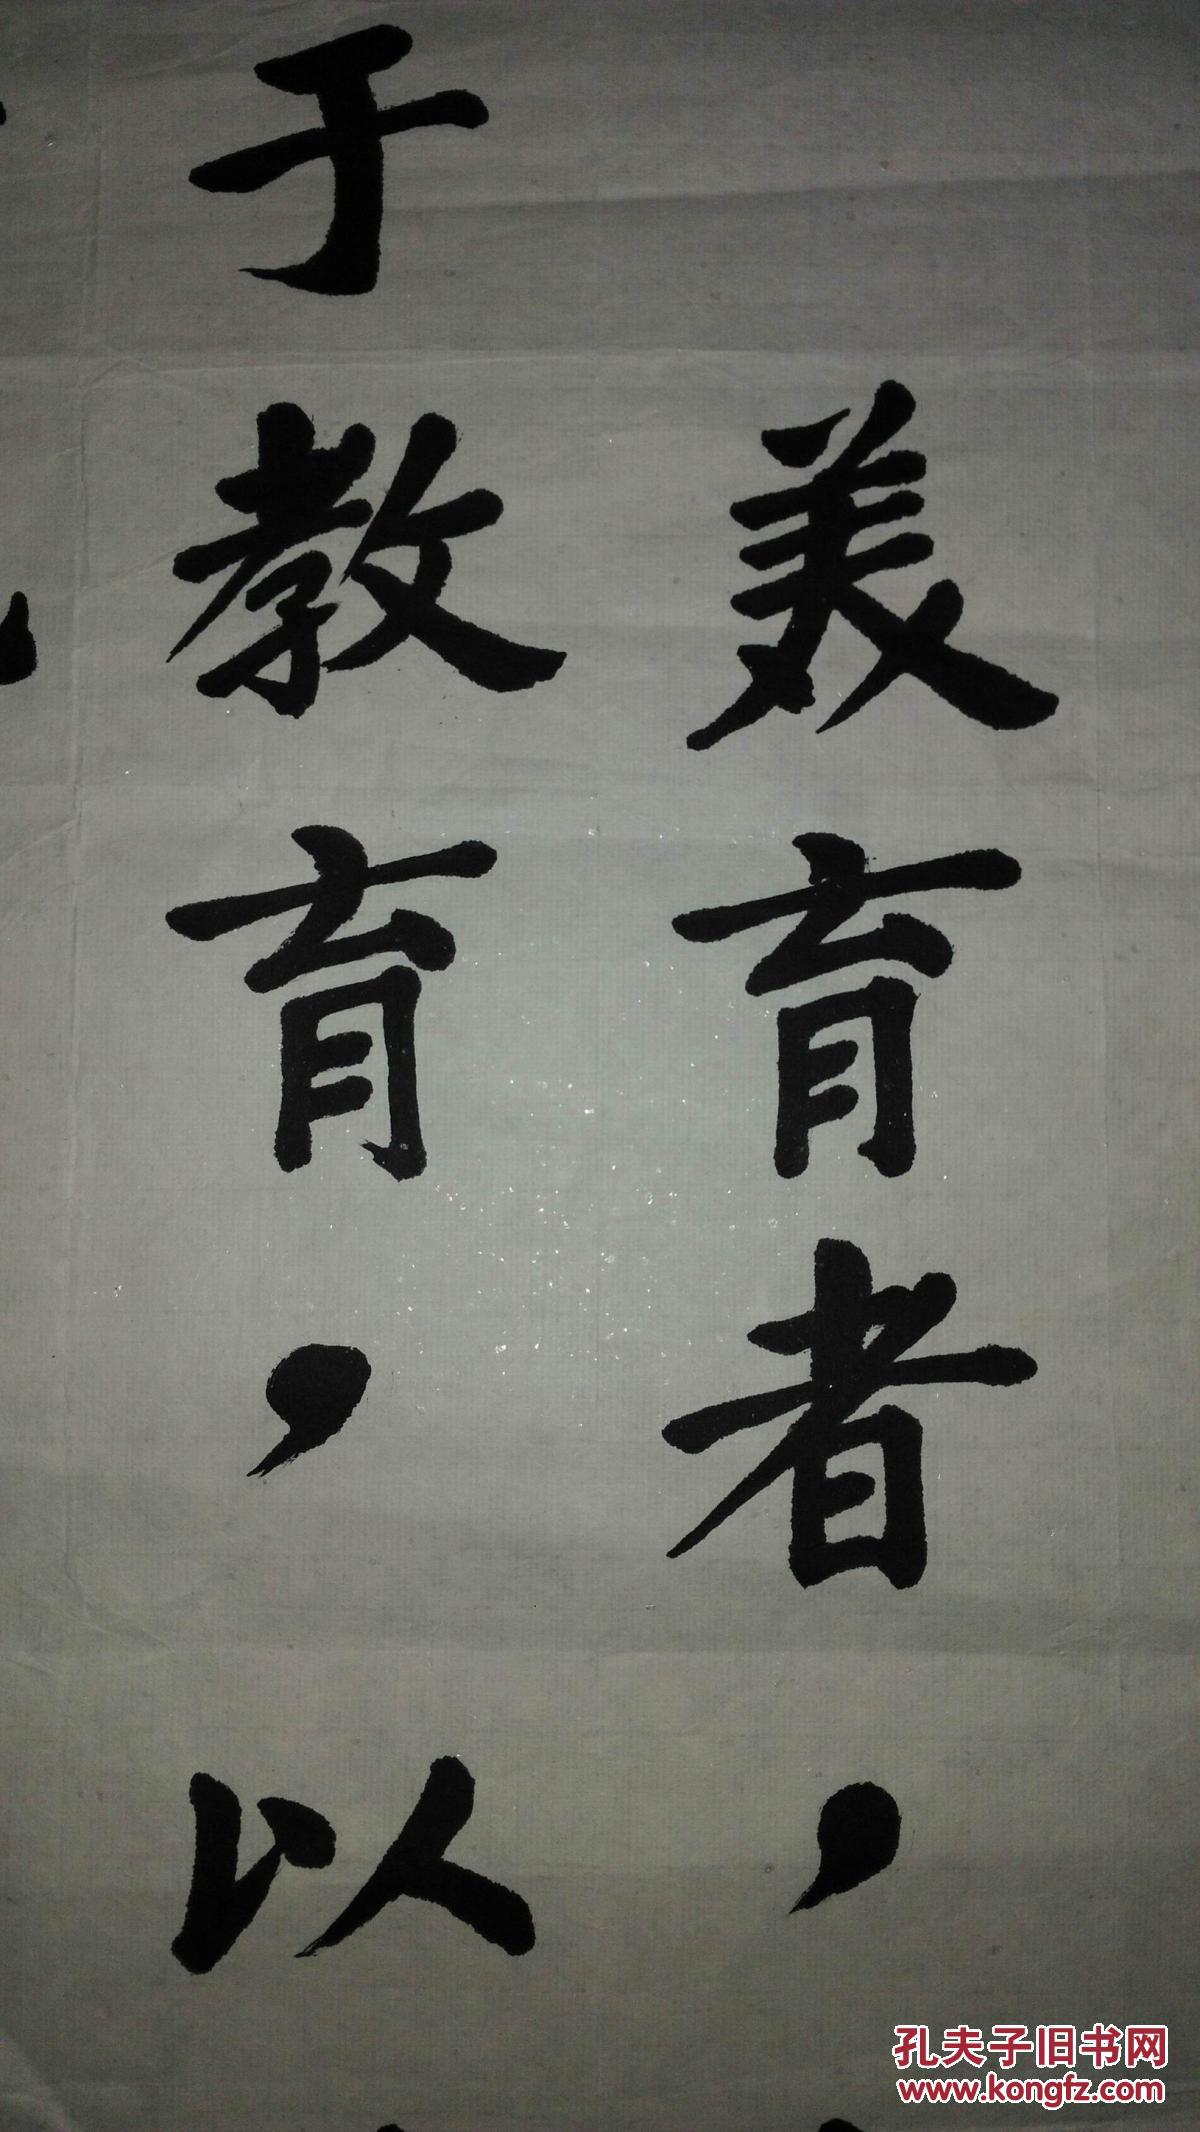 美育者，
于教育，以
孔夫子旧书网
www.kongfz.com